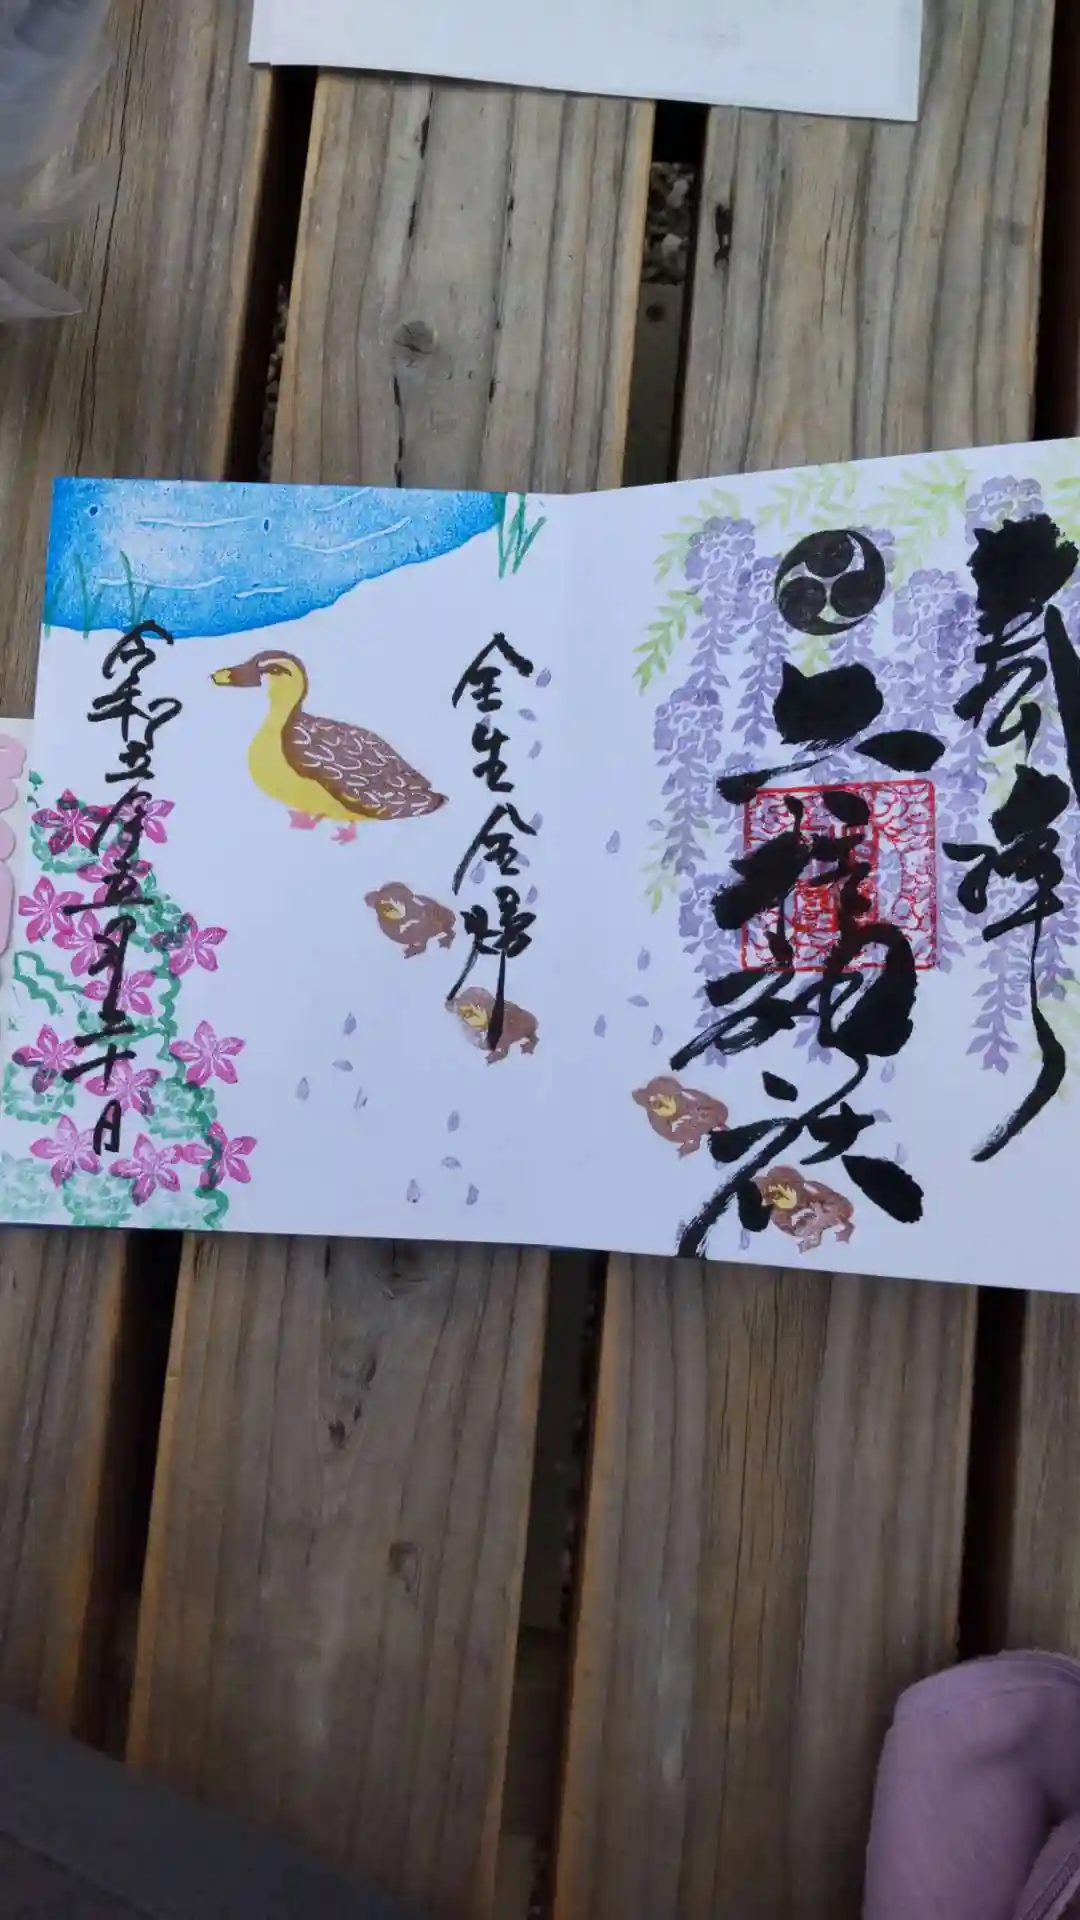 二柱神社
全生全帰
令和五年五月二十日